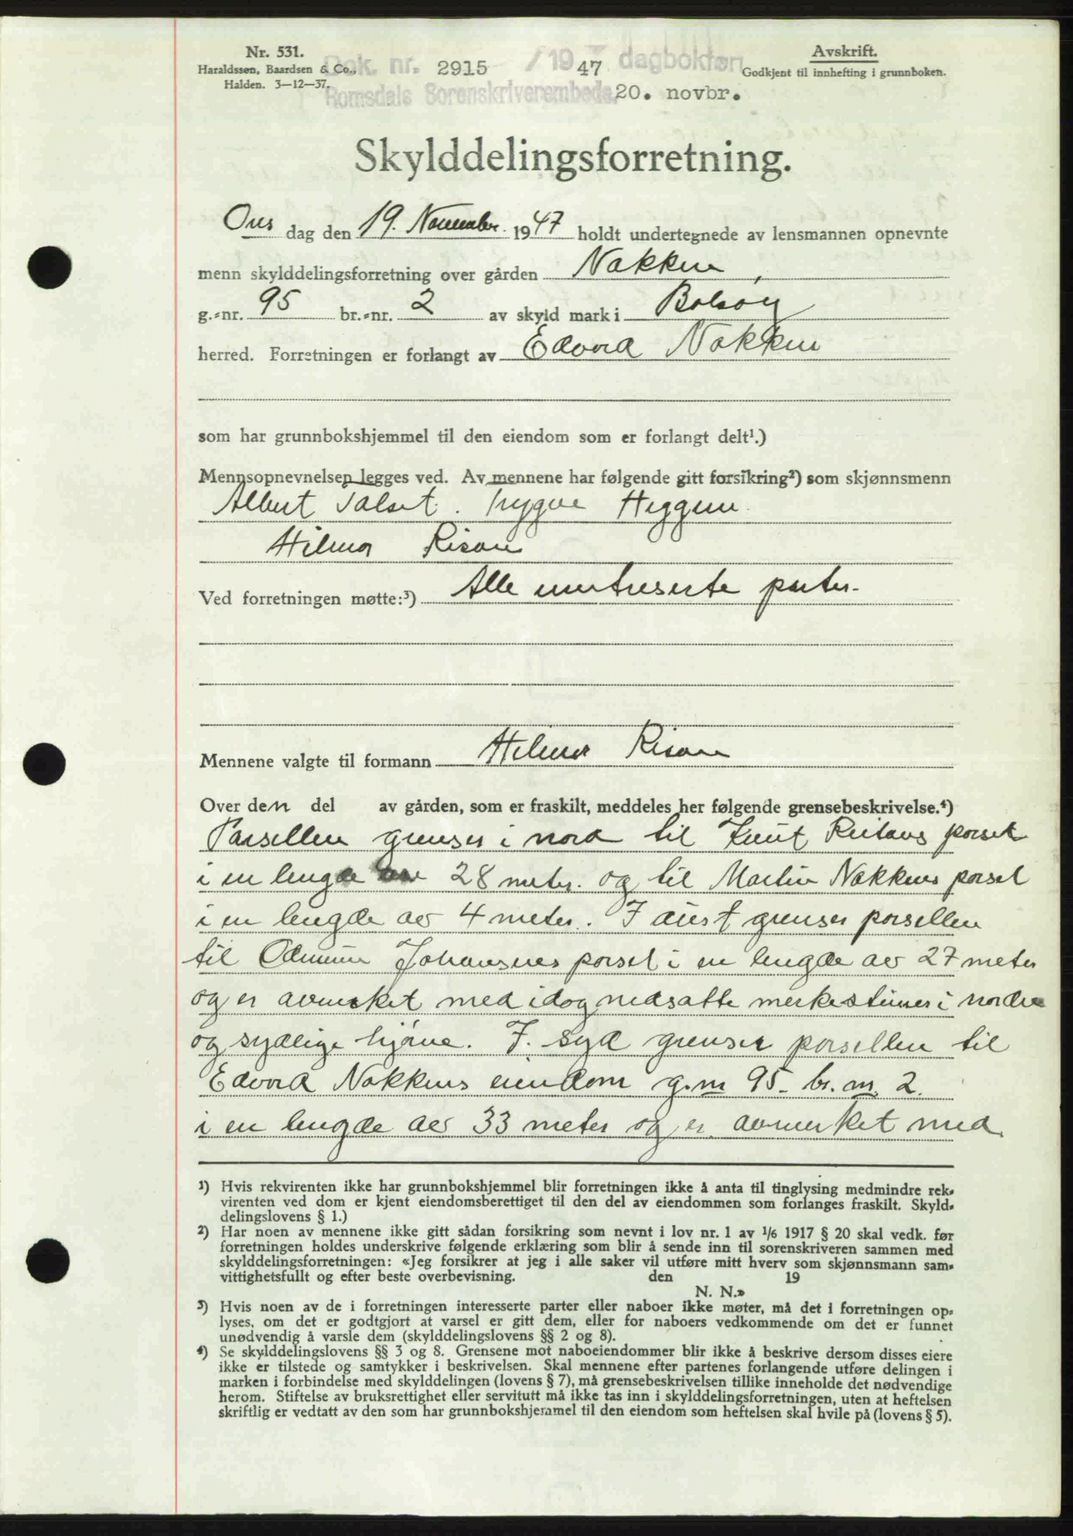 Nr. 531.
Haraldssen, Baardsen & Co.,
Halden. 3—12—37.
Dok. nr. 2915 /19 47 dagbokført
Romsdals Sorenskriverembede, 20. novbr.
Avskrift.
Godkjent til innhefting i grunnboken.
Skylddelingsforretning.
Ons dag den 19. November 1947 holdt undertegnede av lensmannen opnevnte
menn skylddelingsforretning over gården Nakken,
g.-nr. 95 br.-nr. 2 av skyld mark i Bolsøy
herred. Forretningen er forlangt av Edvard Nakken
som har grunnbokshjemmel til den eiendom som er forlangt delt¹.)
Mennsopnevnelsen legges ved. Av mennene har følgende gitt forsikring²) som skjønnsmenn
Albert Talset. Trygve Heggem
Hilmar Risan
Ved forretningen møtte:³) Alle interesserte parter.
Mennene valgte til formann Hilmar Risan
Over den del av gården, som er fraskilt, meddeles her følgende grensebeskrivelse.⁴)
Parsellen grenser i nord til Knut Reitans parsel
i en lengde av 28 meter. og til Martin Nakkens parsel
i en lengde av 4 meter. I aust grenser parsellen
til Johansens parsel i en lengde av 27 meter
og er avmerket med idag nedsatte merkesteiner i nordre
og sydlige hjørne. I. syd grenser parsellen til
Edvard Nakkens eiendom g.nr 95. br. nr. 2.
i en lengde av 33 meter og er avmerket med
¹) Hvis rekvirenten ikke har grunnbokshjemmel blir forretningen ikke å anta til tinglysing medmindre rek-
virenten ved dom er kjent eiendomsberettiget til den del av eiendommen som forlanges fraskilt. Skyld-
delingslovens § 1.)
²) Har noen av mennene ikke gitt sådan forsikring som nevnt i lov nr. 1 av 1/6 1917 § 20 skal vedk. før
forretningen holdes underskrive følgende erklæring som blir å sende inn til sorenskriveren sammen med
skylddelingsforretningen: «Jeg forsikrer at jeg i alle saker vil utføre mitt hverv som skjønnsmann sam-
vittighetsfullt og efter beste overbevisning. den 19
N. N.»
³) Hvis noen av de i forretningen interesserte parter eller naboer ikke møter, må det i forretningen op-
lyses, om det er godtgjort at varsel er gitt dem, eller for naboers vedkommende om det er funnet
unødvendig å varsle dem (skylddelingslovens §§ 2 og 8).
⁴) Se skylddelingslovens §§ 3 og 8. Grensene mot naboeiendommer blir ikke å beskrive dersom disses eiere
ikke er tilstede og samtykker i beskrivelsen. Skal mennene efter partenes forlangende utføre delingen i
marken i forbindelse med skylddelingen (lovens § 7), må grensebeskrivelsen tillike inneholde det nødvendige
herom. Stiftelse av bruksrettighet eller servitutt må ikke tas inn i skylddelingsforretningen, uten at heftelsen
skriftlig er vedtatt av den som har grunnbokshjemmel til den eiendom som heftelsen skal hvile på (lovens § 5).